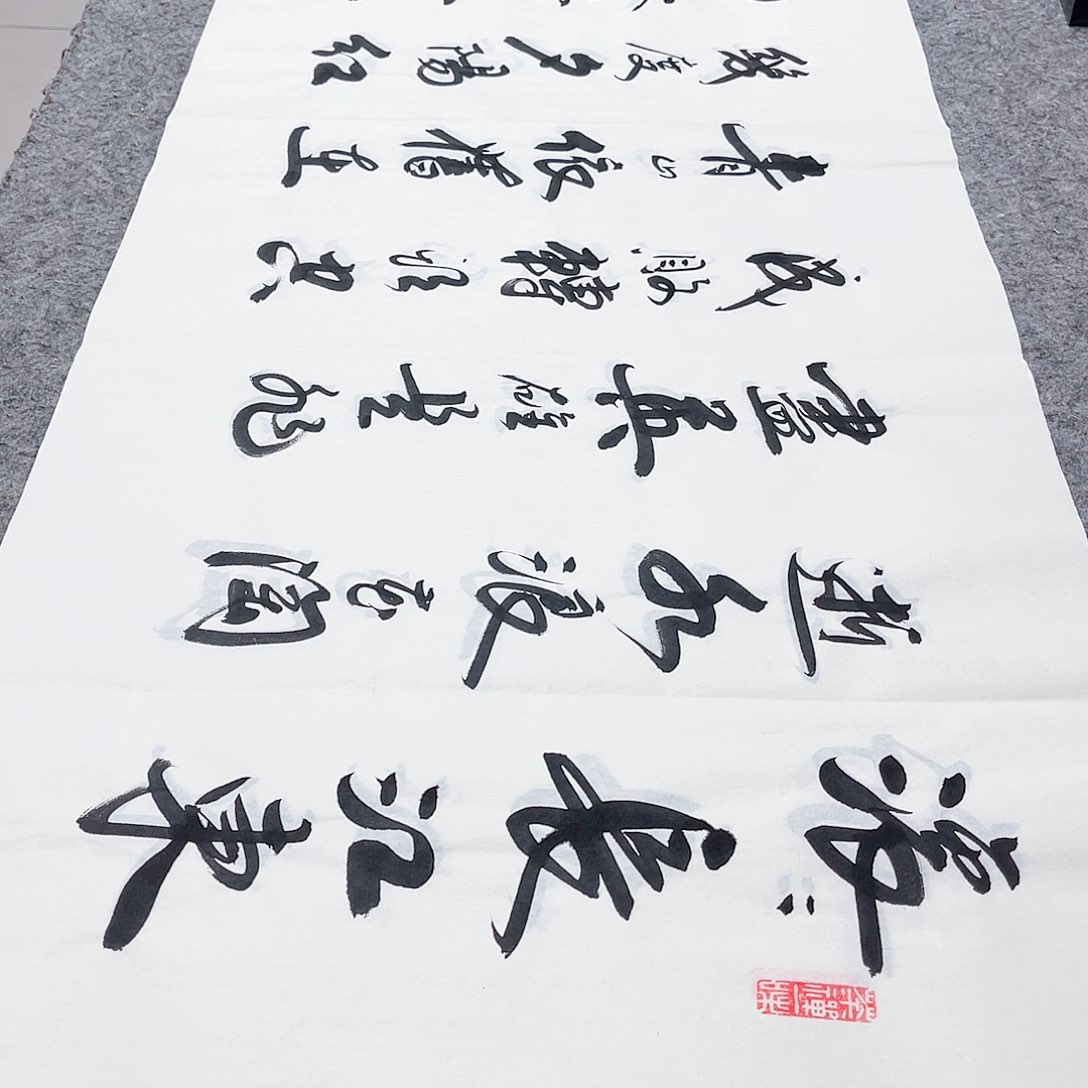 滚〻長江東
逝水浪花淘
盡英雄是非
成敗轉頭空
青山依舊在
幾度夕陽紅